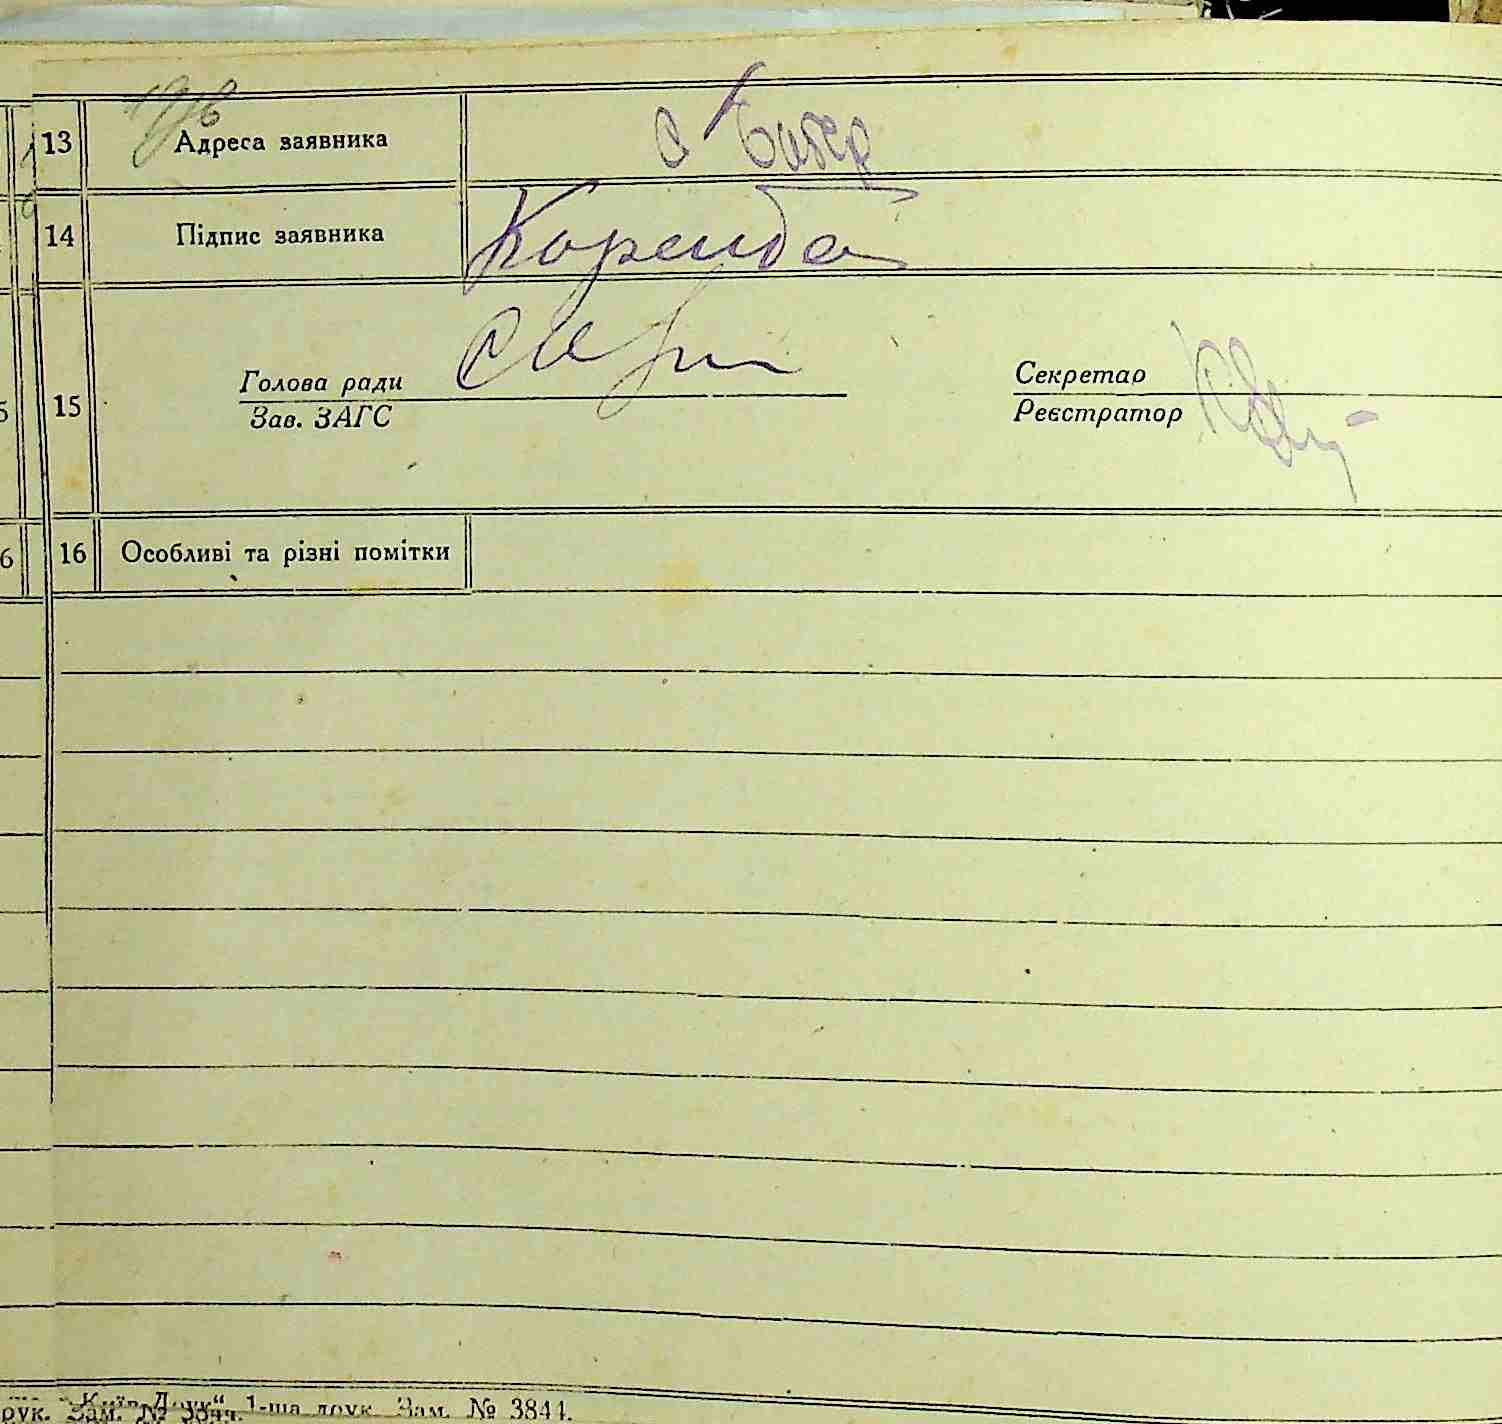 13 Адреса заявника с
14 Підпис заявника Коренда
15 Голова ради
Зав. ЗАГС
Секретар
Реєстратор
16 Особливі та різні помітки
1-ша друк. Зам. № 3844.